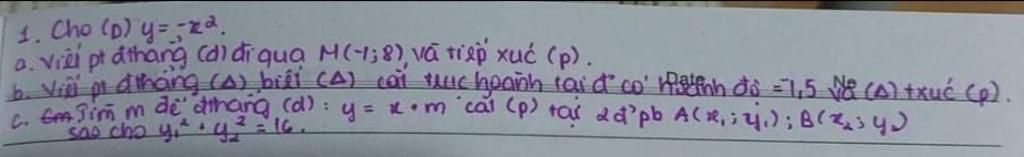 1. Cho (P) y = -x².
a. Viết pt đthẳng (d) đi qua M(-1; 8), và tiếp xúc (p).
b. Viết pt đthẳng (Δ) biết (Δ) cắt trục hoành tại đ' có hoành độ = 1,5 và (Δ) txuc (p).
c. Tìm m để đthẳng (d): y = x + m cắt (p) tại 2đ' pb A(x₁; y₁); B(x₂; y₂)
sao cho y₁² + y₂² = 16.